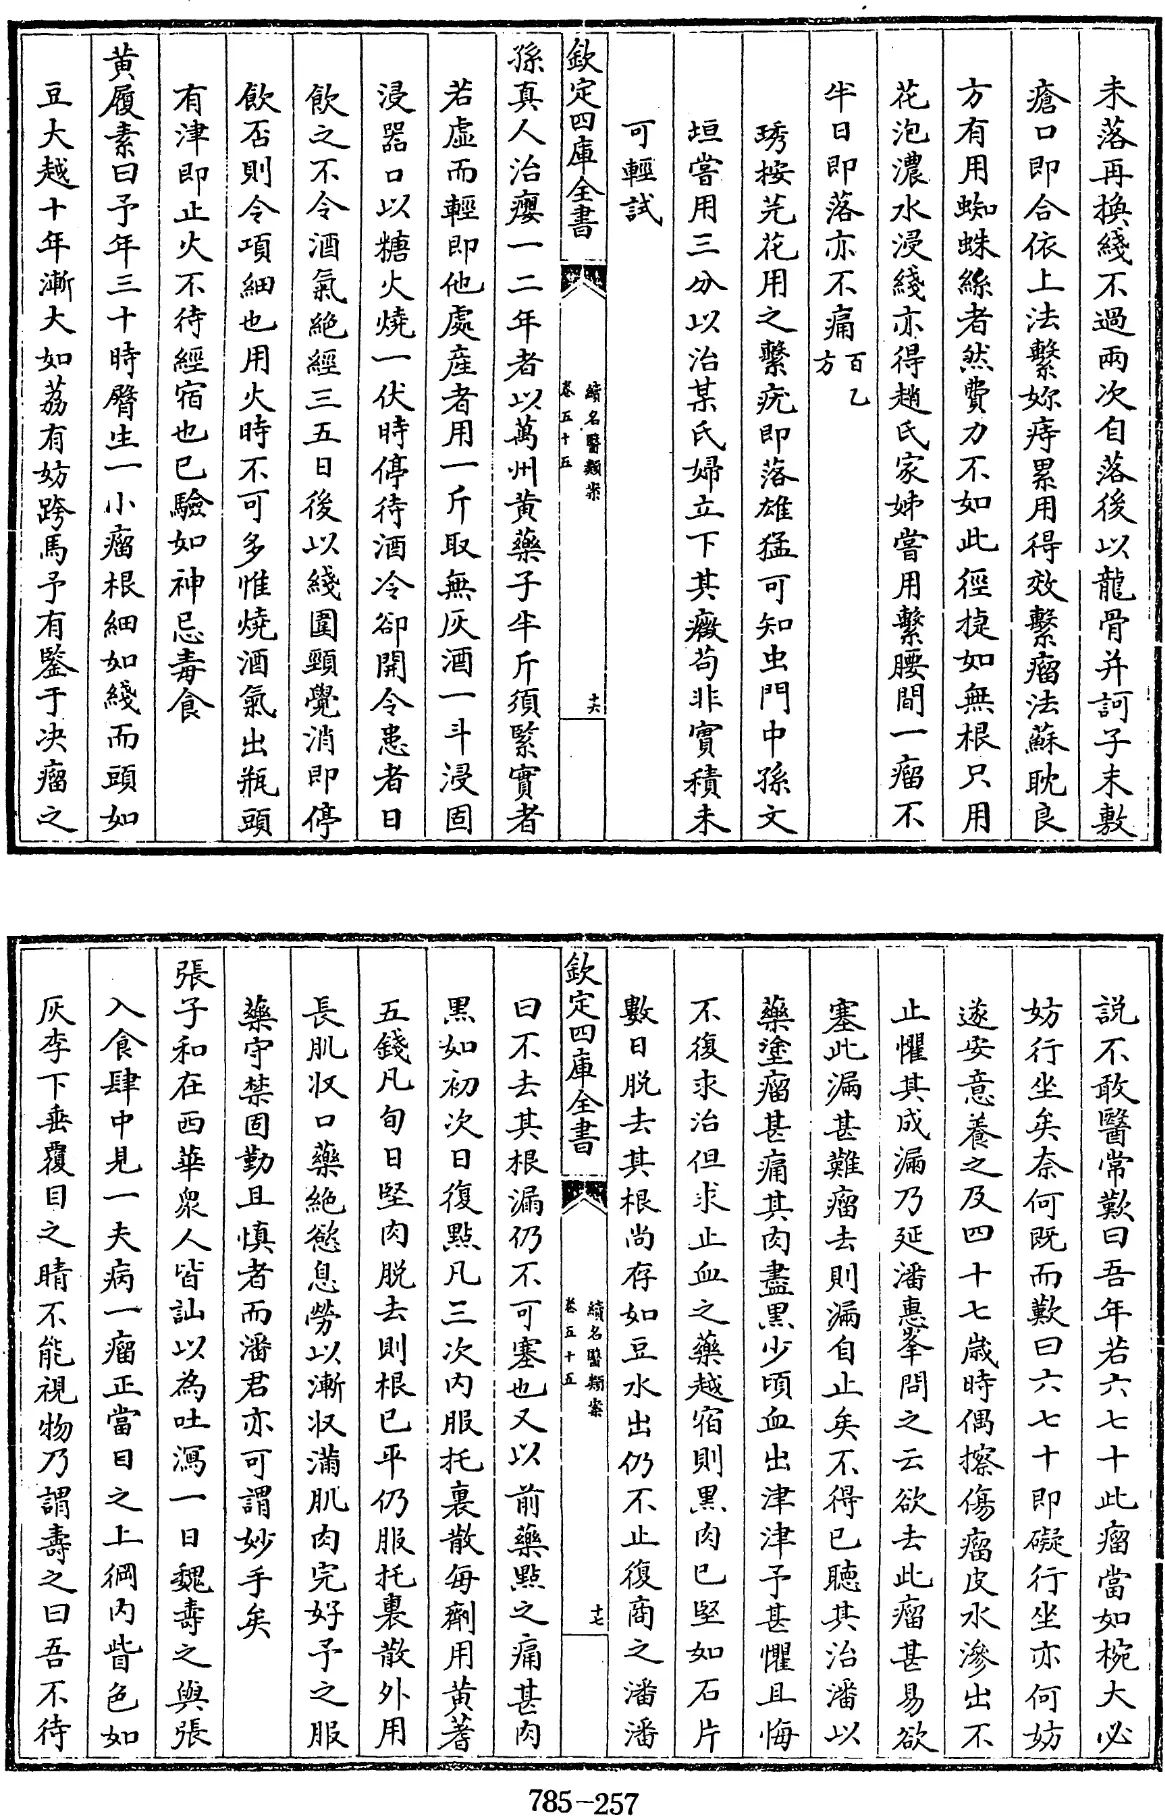 未落再換綫不過兩次自落後以龍骨并訶子末敷
瘡口即合依上法繫妳痔累用得效繫瘤法蘇耽良
方有用蜘蛛絲者然費力不如此徑捷如無根只用
花泡濃水浸綫亦得趙氏家姊嘗用繫腰間一瘤不
半日即落亦不痛百乙方
琇桉芫花用之繫疣即落雄猛可知虫門中孫文
垣嘗用三分以治某氏婦立下其癥苟非實積未
可輕試
欽定四庫全書
續名醫類案
卷五十五
十六
孫真人治癭一二年者以萬州黄藥子半斤須緊實者
若虛而輕即他處産者用一斤取無灰酒一斗浸固
浸器口以糖火燒一伏時停待酒冷卻開令患者日
飲之不令酒氣絶經三五日後以綫圍頸覺消即停
飲否則令項細也用火時不可多惟燒酒氣出瓶頭
有津即止火不待經宿也已驗如神忌毒食
黄履素曰予年三十時臂生一小瘤根細如綫而頭如
豆大越十年漸大如荔有妨跨馬予有鑒于决瘤之
説不敢醫常歎曰吾年若六七十此瘤當如椀大必
妨行坐矣奈何既而歎曰六七十即礙行坐亦何妨
遂安意養之及四十七歲時偶擦傷瘤皮水滲出不
止懼其成漏乃延潘惠峯問之云欲去此瘤甚易欲
塞此漏甚難瘤去則漏自止矣不得已聽其治潘以
藥塗瘤甚痛其肉盡黒少頃血出津津予甚懼且悔
不復求治但求止血之藥越宿則黒肉已堅如石片
數日脱去其根尚存如豆水出仍不止復商之潘潘
欽定四庫全書
續名醫類案
卷五十五
十七
曰不去其根漏仍不可塞也又以前藥㸃之痛甚肉
黒如初次日復㸃凡三次内服托裏散每劑用黄蓍
五錢凡旬日堅肉脱去則根已平仍服托裏散外用
長肌收口藥絶慾息勞以漸收滿肌肉完好予之服
藥守禁固勤且慎者而潘君亦可謂妙手矣
張子和在西華衆人皆訕以為吐瀉一日魏壽之與張
入食肆中見一夫病一瘤正當目之上綱内眥色如
灰李下垂覆目之睛不能視物乃謂壽之曰吾不待
785-257